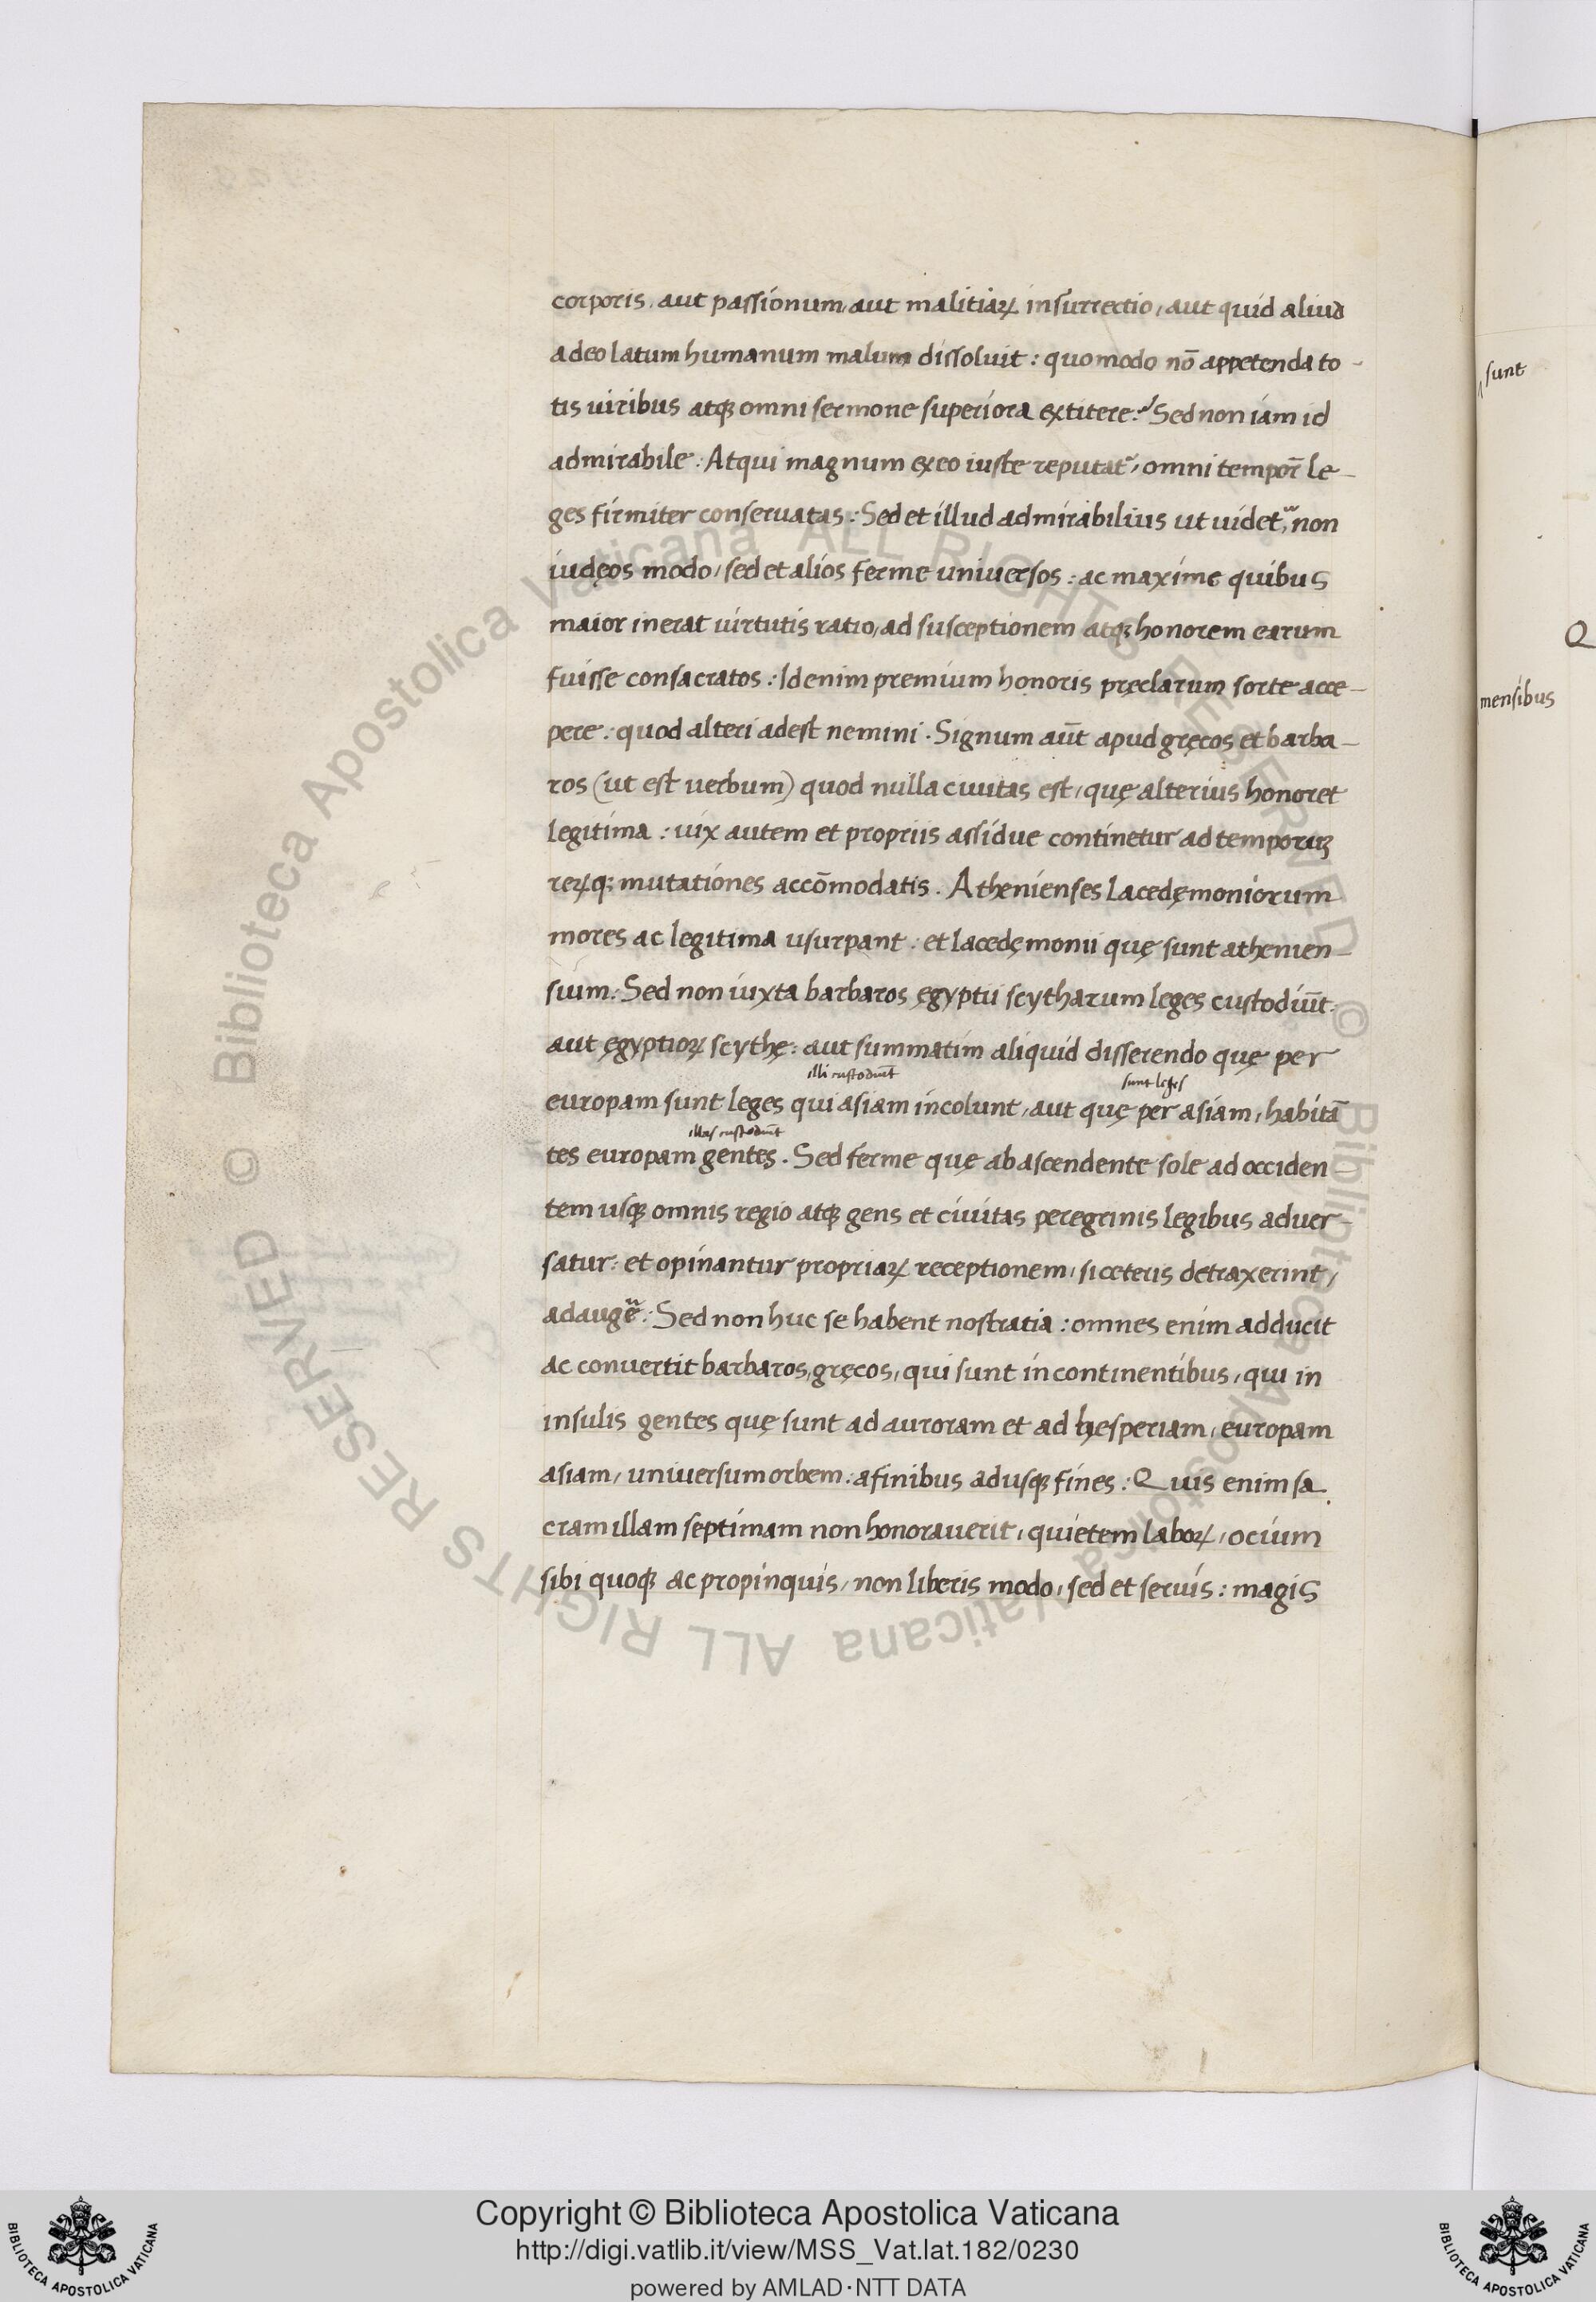 corporis, aut passionum, aut malitiaꝝ insurrectio, aut quid aliud
adeo latum humanum malum dissoluit: quomodo nō appetenda to-
tis uiribus atqꝫ omni sermone superiora extitere? Sed non iam id
admirabile: Atqui magnum ex eo iuste reputat᷑, omni tempor̄ le-
ges firmiter conseruatas: Sed et illud admirabilius ut uidet᷑, non
iudęos modo, sed et alios ferme uniuersos: ac maxime quibus
maior inerat uirtutis ratio, ad susceptionem atqꝫ honorem earum
fuisse consacratos: Id enim premium honoris pręclarum sorte acce-
pere: quod alteri adest nemini. Signum aūt apud gręcos et barba-
ros (ut est uerbum) quod nulla ciuitas est, quę alterius honoret
legitima: uix autem et propriis assidue continetur ad temporum
reꝝqꝫ mutationes accōmodatis. Athenienses Lacedęmoniorum
mores ac legitima usurpant: et lacedęmonii quę sunt athenien-
sium: Sed non iuxta barbaros ęgyptii scytharum leges custodiūt:
aut ęgyptioꝝ scythę: aut summatim aliquid disserendo quę per
illi custodiūt sunt leges
europam sunt leges qui asiam incolunt, aut quę per asiam, habitā
illas custodiūt
tes europam gentes. Sed ferme quę ab ascendente sole ad occiden
tem usqꝫ omnis regio atqꝫ gens et ciuitas peregrinis legibus aduer-
satur: et opinantur propriaꝝ receptionem, si ceteris detraxerint,
adaugē: Sed non huc se habent nostratia: omnes enim adducit
ac conuertit barbaros, gręcos, qui sunt in continentibus, qui in
insulis gentes quę sunt ad auroram et ad hesperiam, europam
asiam, uniuersum orbem: a finibus adusqꝫ fines: Quis enim sa
cram illam septimam non honorauerit, quietem laboꝝ, ocium
sibi quoqꝫ ac propinquis, non liberis modo, sed et seruis: magis
sunt
Q
mensibus
Copyright © Biblioteca Apostolica Vaticana
http://digi.vatlib.it/view/MSS_Vat.lat.182/0230
powered by AMLAD·NTT DATA
BIBLIOTECA APOSTOLICA VATICANA
BIBLIOTECA APOSTOLICA VATICANA
© Biblioteca Apostolica Vaticana ALL RIGHTS RESERVED
© Biblioteca Apostolica Vaticana ALL RIGHTS RESERVED